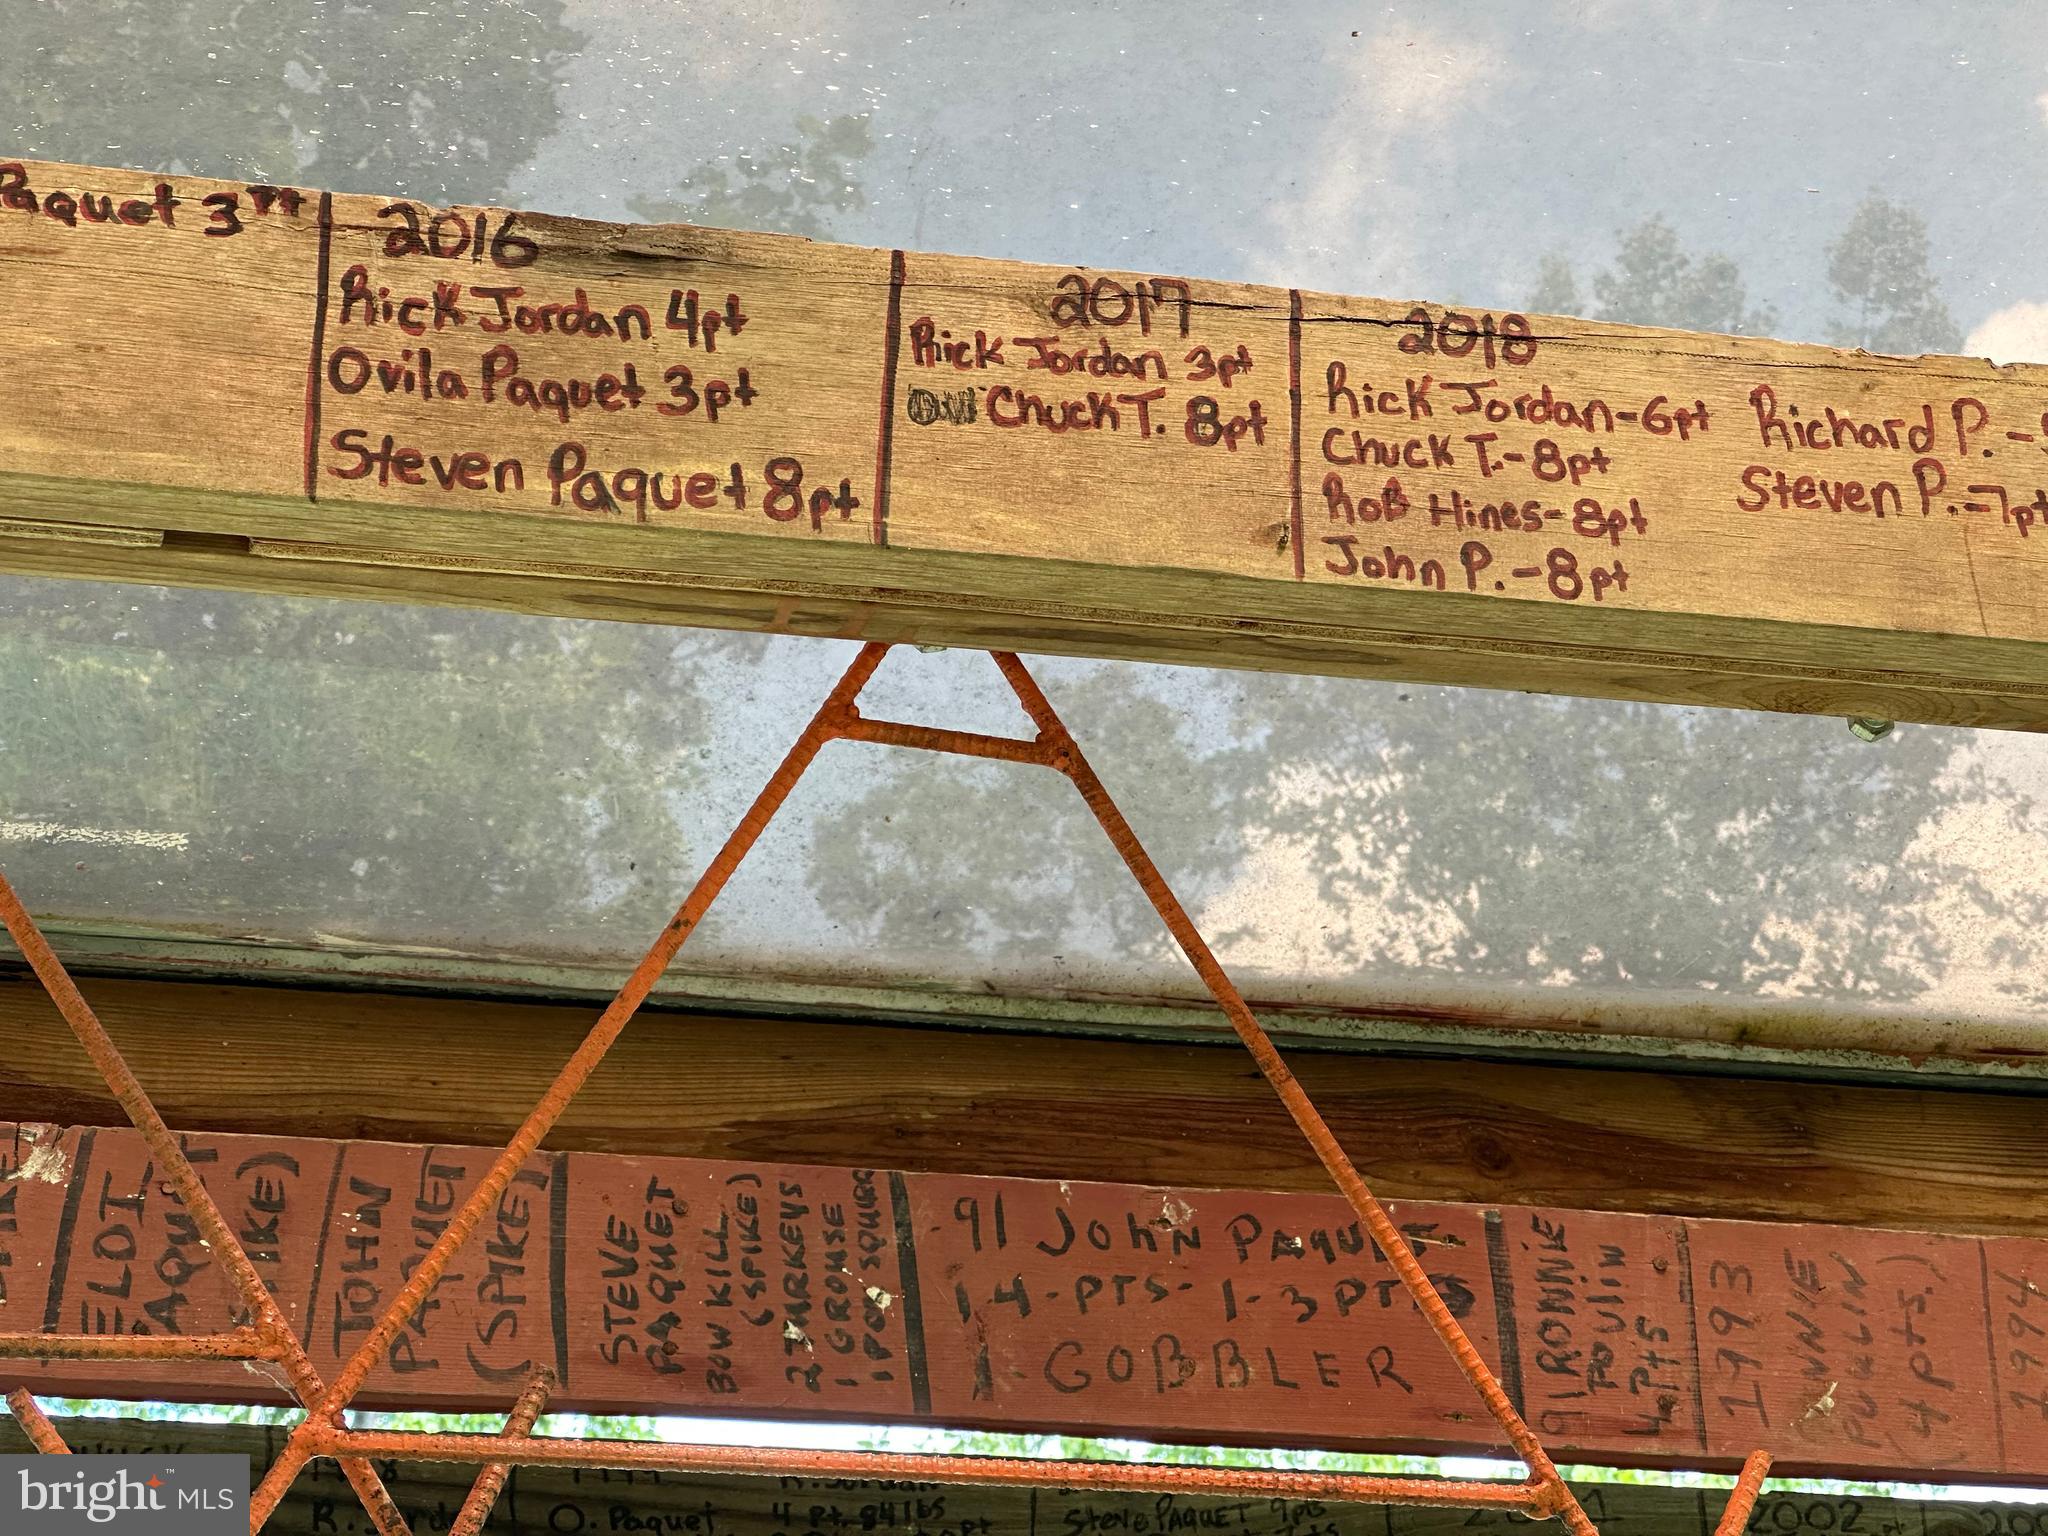 Paquet 3pt
2016
Rick Jordan 4pt
Ovila Paquet 3pt
Steven Paquet 8pt
2017
Rick Jordan 3pt
Chuck T. 8pt
2018
Rick Jordan-6pt
Chuck T.-8pt
Rob Hines-8pt
John P.-8pt
Richard P.-
Steven P.-7pt
JOHN
PAQUET
(SPIKE)
STEVE
PAQUET
BOW KILL
(SPIKE)
2 TURKEYS
1 GROUSE
91 JOHN PAQUET
1 4-PTS- 1-3 PT
1 GOBBLER
91 RONNIE
POULIN
4 Pts
1993
POULIN
4 Pts.)
1994
O. Paquet
4 Pt. 84 lbs
Steve PAQUET
2002
bright MLS